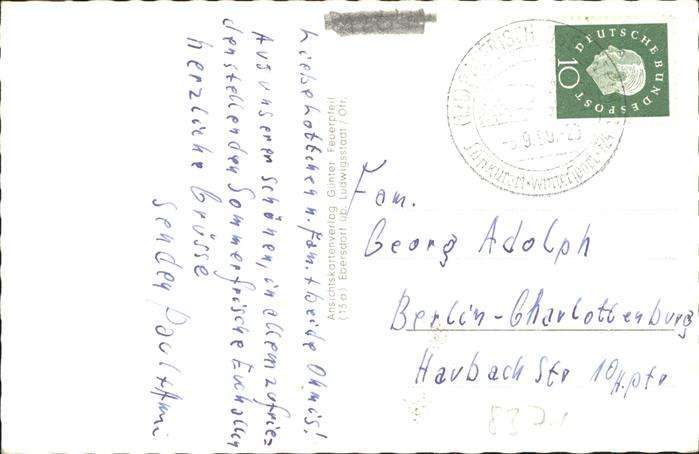 Liebe Lottchen u. Fam. + beide Ohmis!
Aus unserer schönen, in allem zufrie-
denstellenden Sommerfrische Euch allen
herzliche Grüsse
senden Paul + Anni
Ansichtskartenverlag Günter Feuerpfeil
(13a) Ebersdorf üb. Ludwigsstadt/Ofr.
DEUTSCHE BUNDESPOST
10
Fam.
Georg Adolph
Berlin-Charlottenburg
Haubach Str 10 H.ptr